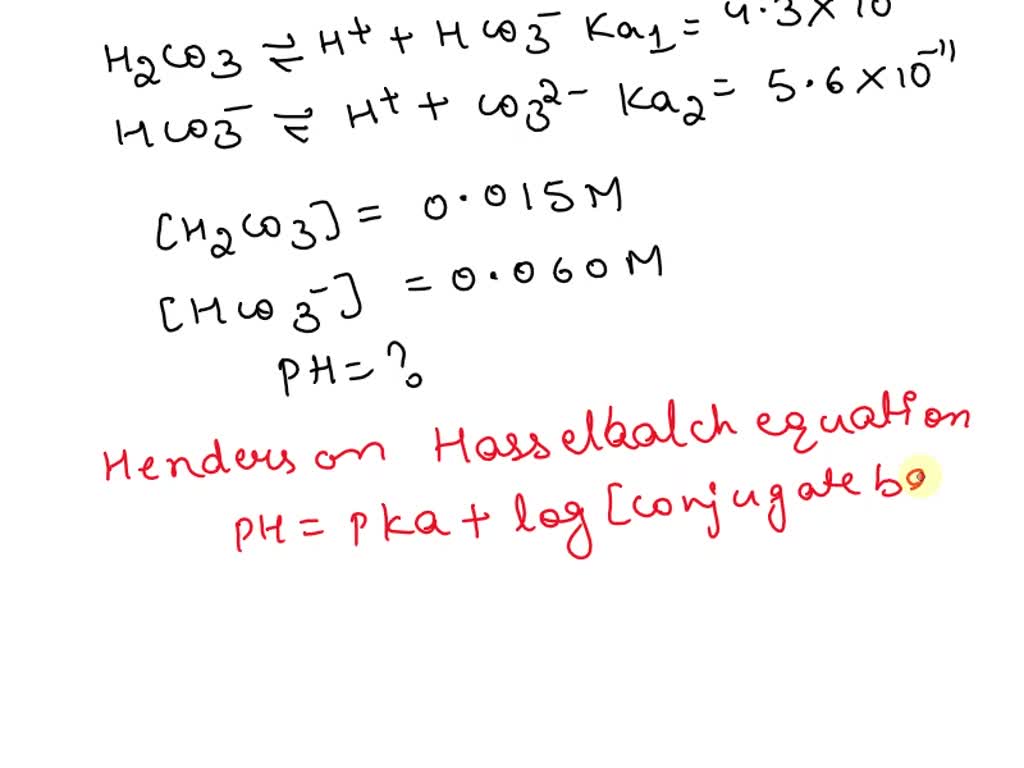 H2CO3 ⇌ H+ + HCO3- Ka1 = 4.3×10
HCO3- ⇌ H+ + CO3 2- Ka2 = 5.6×10^-11
[H2CO3] = 0.015M
[HCO3-] = 0.060M
PH = ?
Henderson Hasselbalch equation
PH = Pka + log [conjugate ba